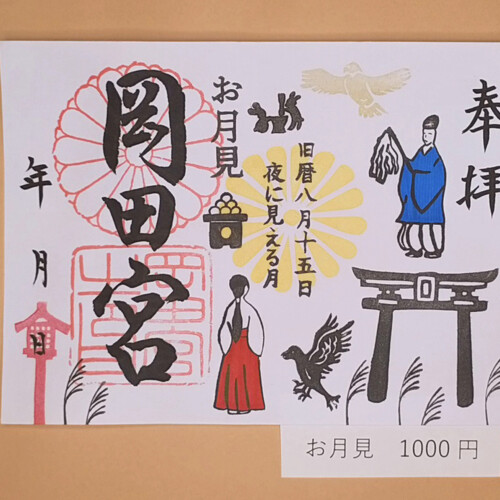 奉拝
旧暦八月十五日
夜に見える月
お月見
岡田宮
年月日
お月見 1000円